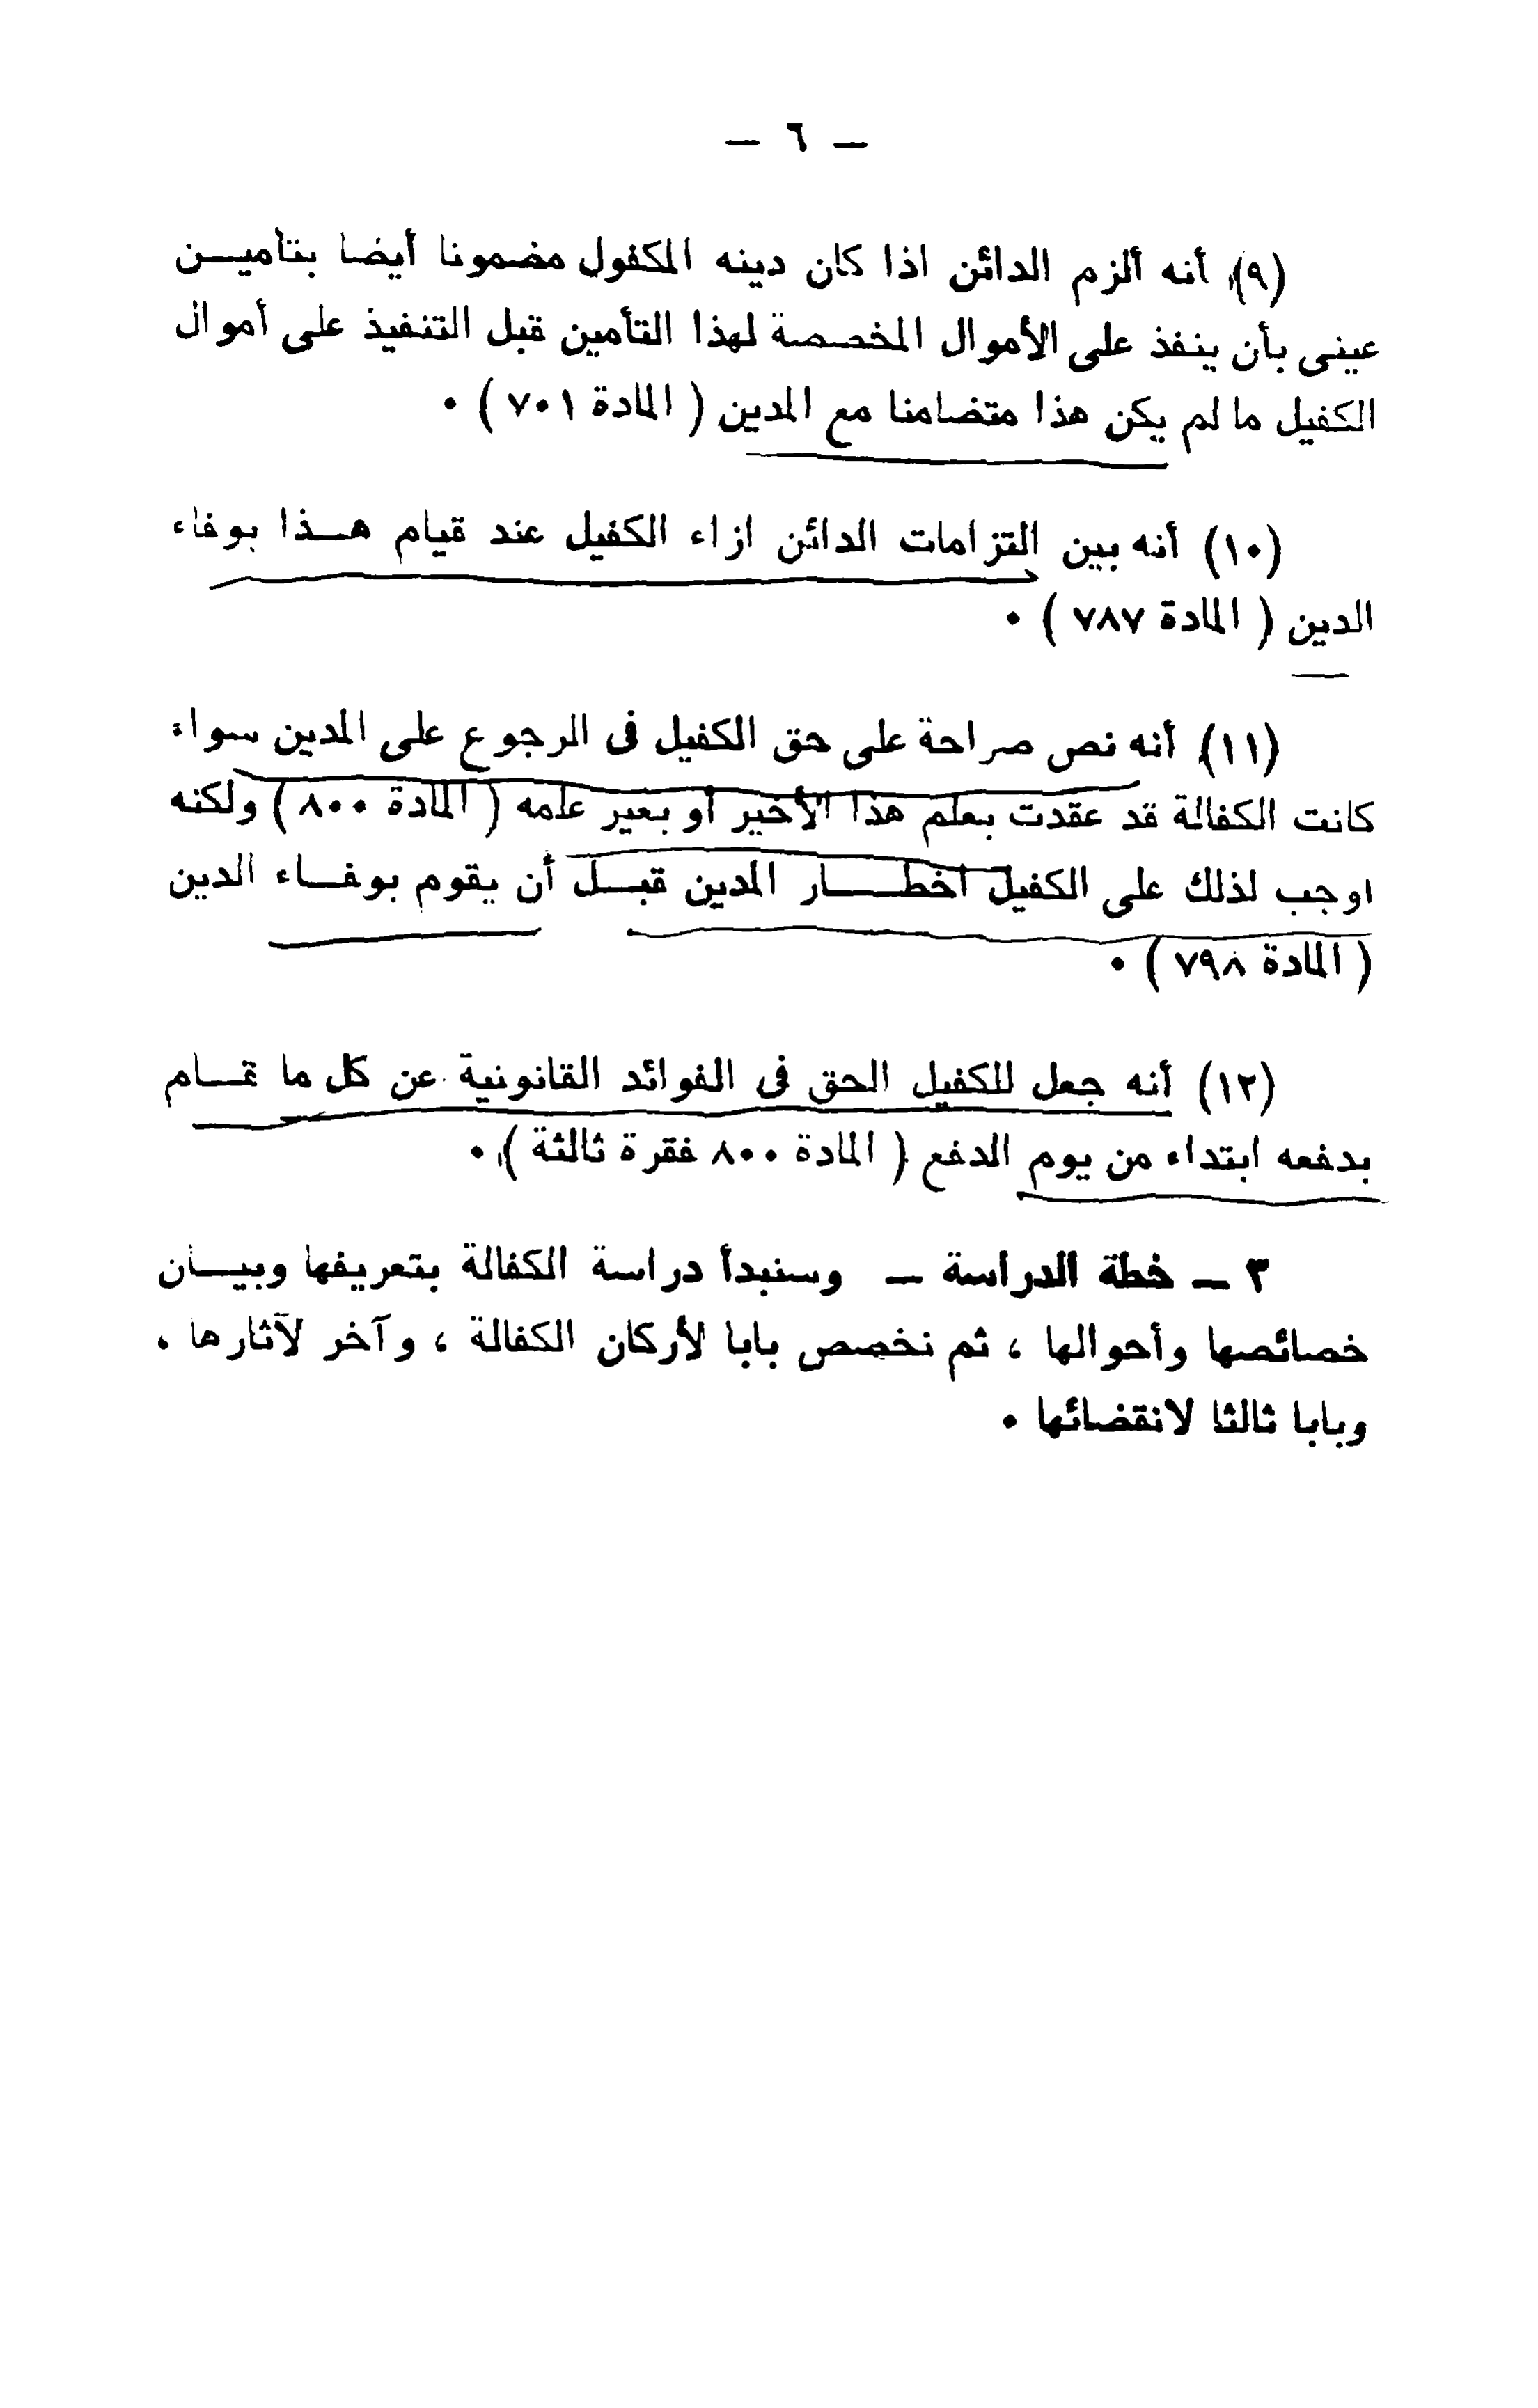 — ٦ —
(٩) أنه ألزم الدائن اذا كان دينه المكفول مضمونا أيضا بتأميـــن
عينى بأن ينفذ على الأموال المخصصة لهذا التأمين قبل التنفيذ على أموال
الكفيل ما لم يكن هذا متضامنا مع المدين ( المادة ٧٠١ ) ٠
(١٠) أنه بين التزامات الدائن ازاء الكفيل عند قيام هـــذا بوفاء
الدين ( المادة ٧٨٧ ) ٠
(١١) أنه نص صراحة على حق الكفيل فى الرجوع على المدين سواء
كانت الكفالة قد عقدت بعلم هذا الأخير أو بغير علمه ( المادة ٨٠٠ ) ولكنه
اوجب لذلك على الكفيل اخطـــــار المدين قبـــل أن يقوم بوفـــاء الدين
( المادة ٧٩٨ ) ٠
(١٢) أنه جعل للكفيل الحق فى الفوائد القانونية عن كل ما قـــام
بدفعه ابتداء من يوم الدفع ( المادة ٨٠٠ فقرة ثالثة ) ٠
٣ — خطة الدراسة — وسنبدأ دراسة الكفالة بتعريفها وبيـــان
خصائصها وأحوالها ، ثم نخصص بابا لأركان الكفالة ، وآخر لآثارها ،
وبابا ثالثا لانقضائها ٠